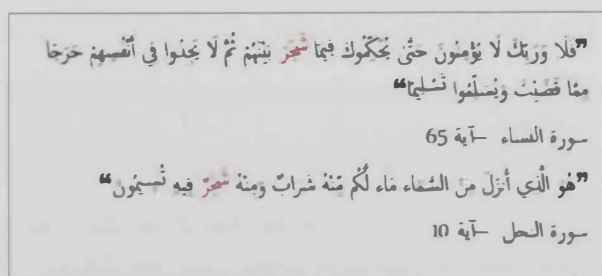 ❞فَلَا وَرَبِّكَ لَا يُؤْمِنُونَ حَتَّىٰ يُحَكِّمُوكَ فِيمَا شَجَرَ بَيْنَهُمْ ثُمَّ لَا يَجِدُوا فِي أَنْفُسِهِمْ حَرَجًا
مِمَّا قَضَيْتَ وَيُسَلِّمُوا تَسْلِيمًا❝
سورة النساء –آية 65
❞هُوَ الَّذِي أَنْزَلَ مِنَ السَّمَاءِ مَاءً لَكُم مِّنْهُ شَرَابٌ وَمِنْهُ شَجَرٌ فِيهِ تُسِيمُونَ❝
سورة النحل –آية 10